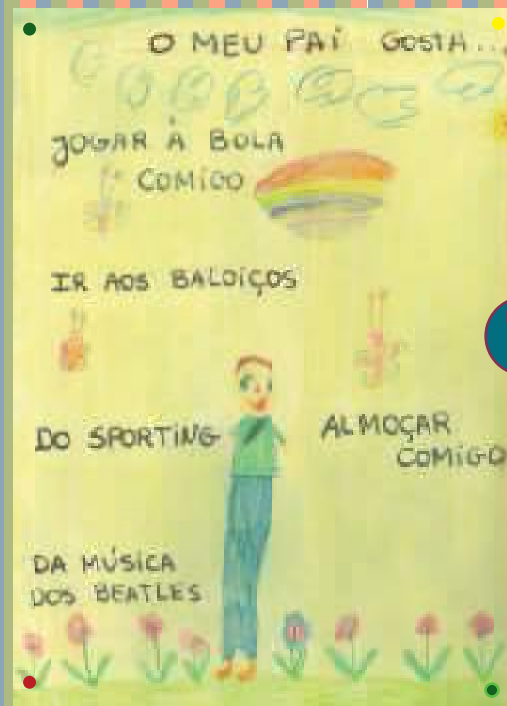 O MEU PAI GOSTA...
JOGAR À BOLA
COMIGO
IR AOS BALOIÇOS
DO SPORTING
ALMOÇAR
COMIGO
DA MÚSICA
DOS BEATLES